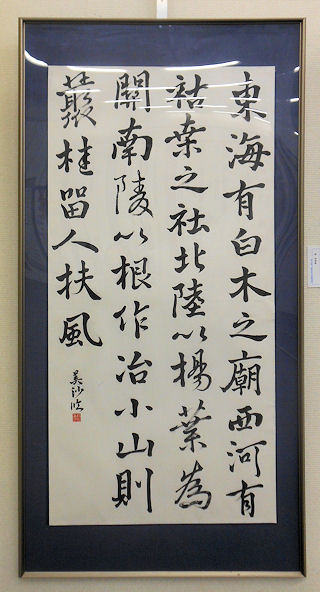 東海有白木之廟西河有
枯桒之社北陸以楊葉為
關南陵以根作冶小山則
藂桂留人扶風